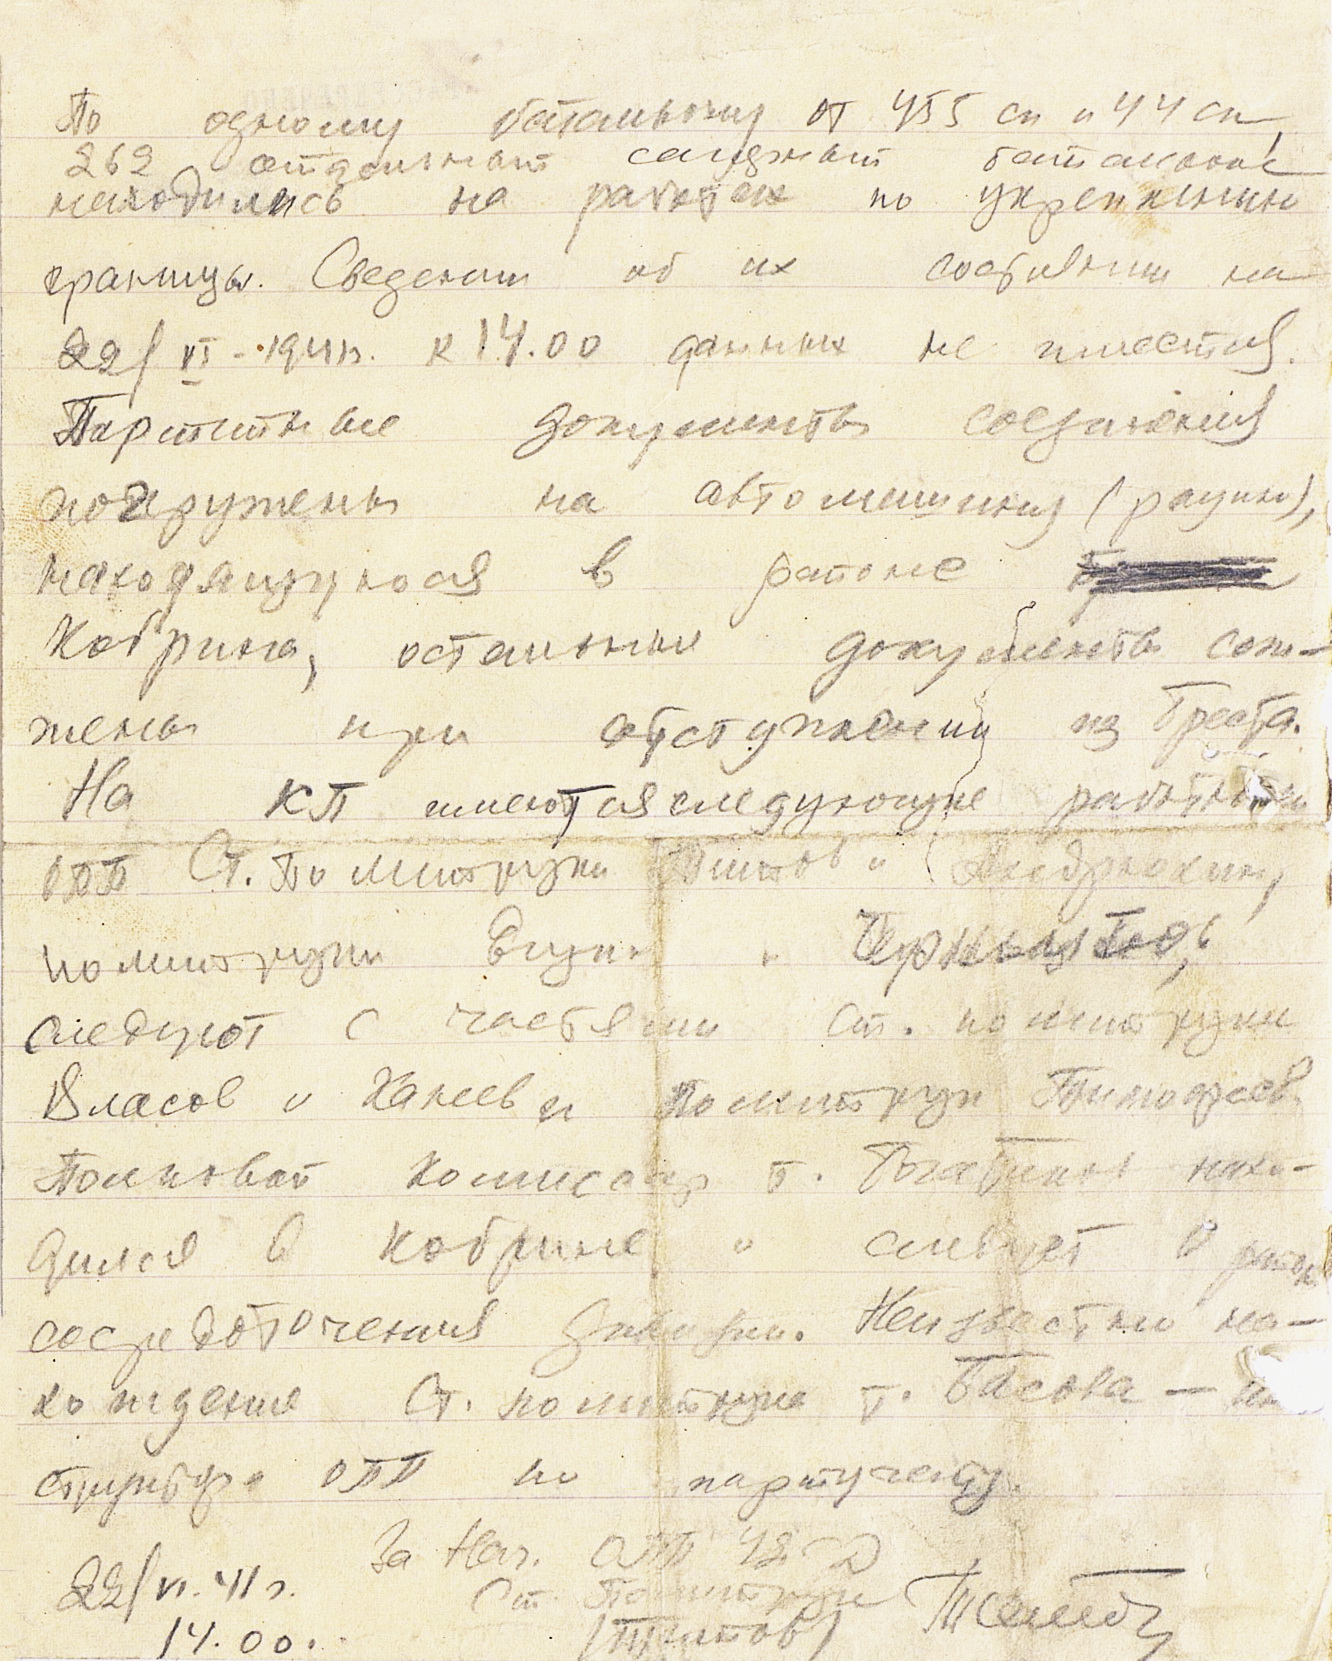 По одному батальону от 455 сп и 44 сп,
262 отдельный саперный батальон
находились на работах по укреплению
границы. Сведений об их состоянии на
22/VI-1941г. к 14.00 данных не имеется.
Партийные документы соединения
погружены на автомашину (рацию),
находящуюся в районе
Кобрина, остальные документы сож-
жены при отступлении из Бреста.
На КП имеются следующие работники
ОПП Ст. Политруки Титов и Андрюхин,
политруки и
следуют с частями ст. политруки
Власов и Ханеев и политрук Тимофеев.
Полковой комиссар т. нахо-
дился в Кобрине и следует в район
сосредоточения дивизии. Неизвестно на-
хождение Ст. политрука т. Басова — ин-
структора ОПП по партучету.
За Нач. ОПП 42 СД
22/VI.41г. Ст. Политрук
14.00. /Титов/